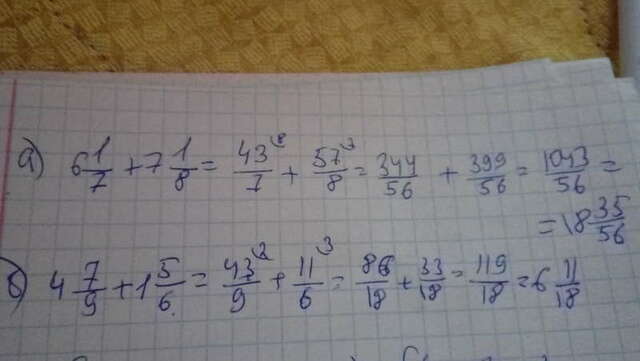 а) 6 1/7 + 7 1/8 = 43⁸/7 + 57⁷/8 = 344/56 + 399/56 = 1043/56 =
= 18 35/56
б) 4 7/9 + 1 5/6 = 43²/9 + 11³/6 = 86/18 + 33/18 = 119/18 = 6 11/18